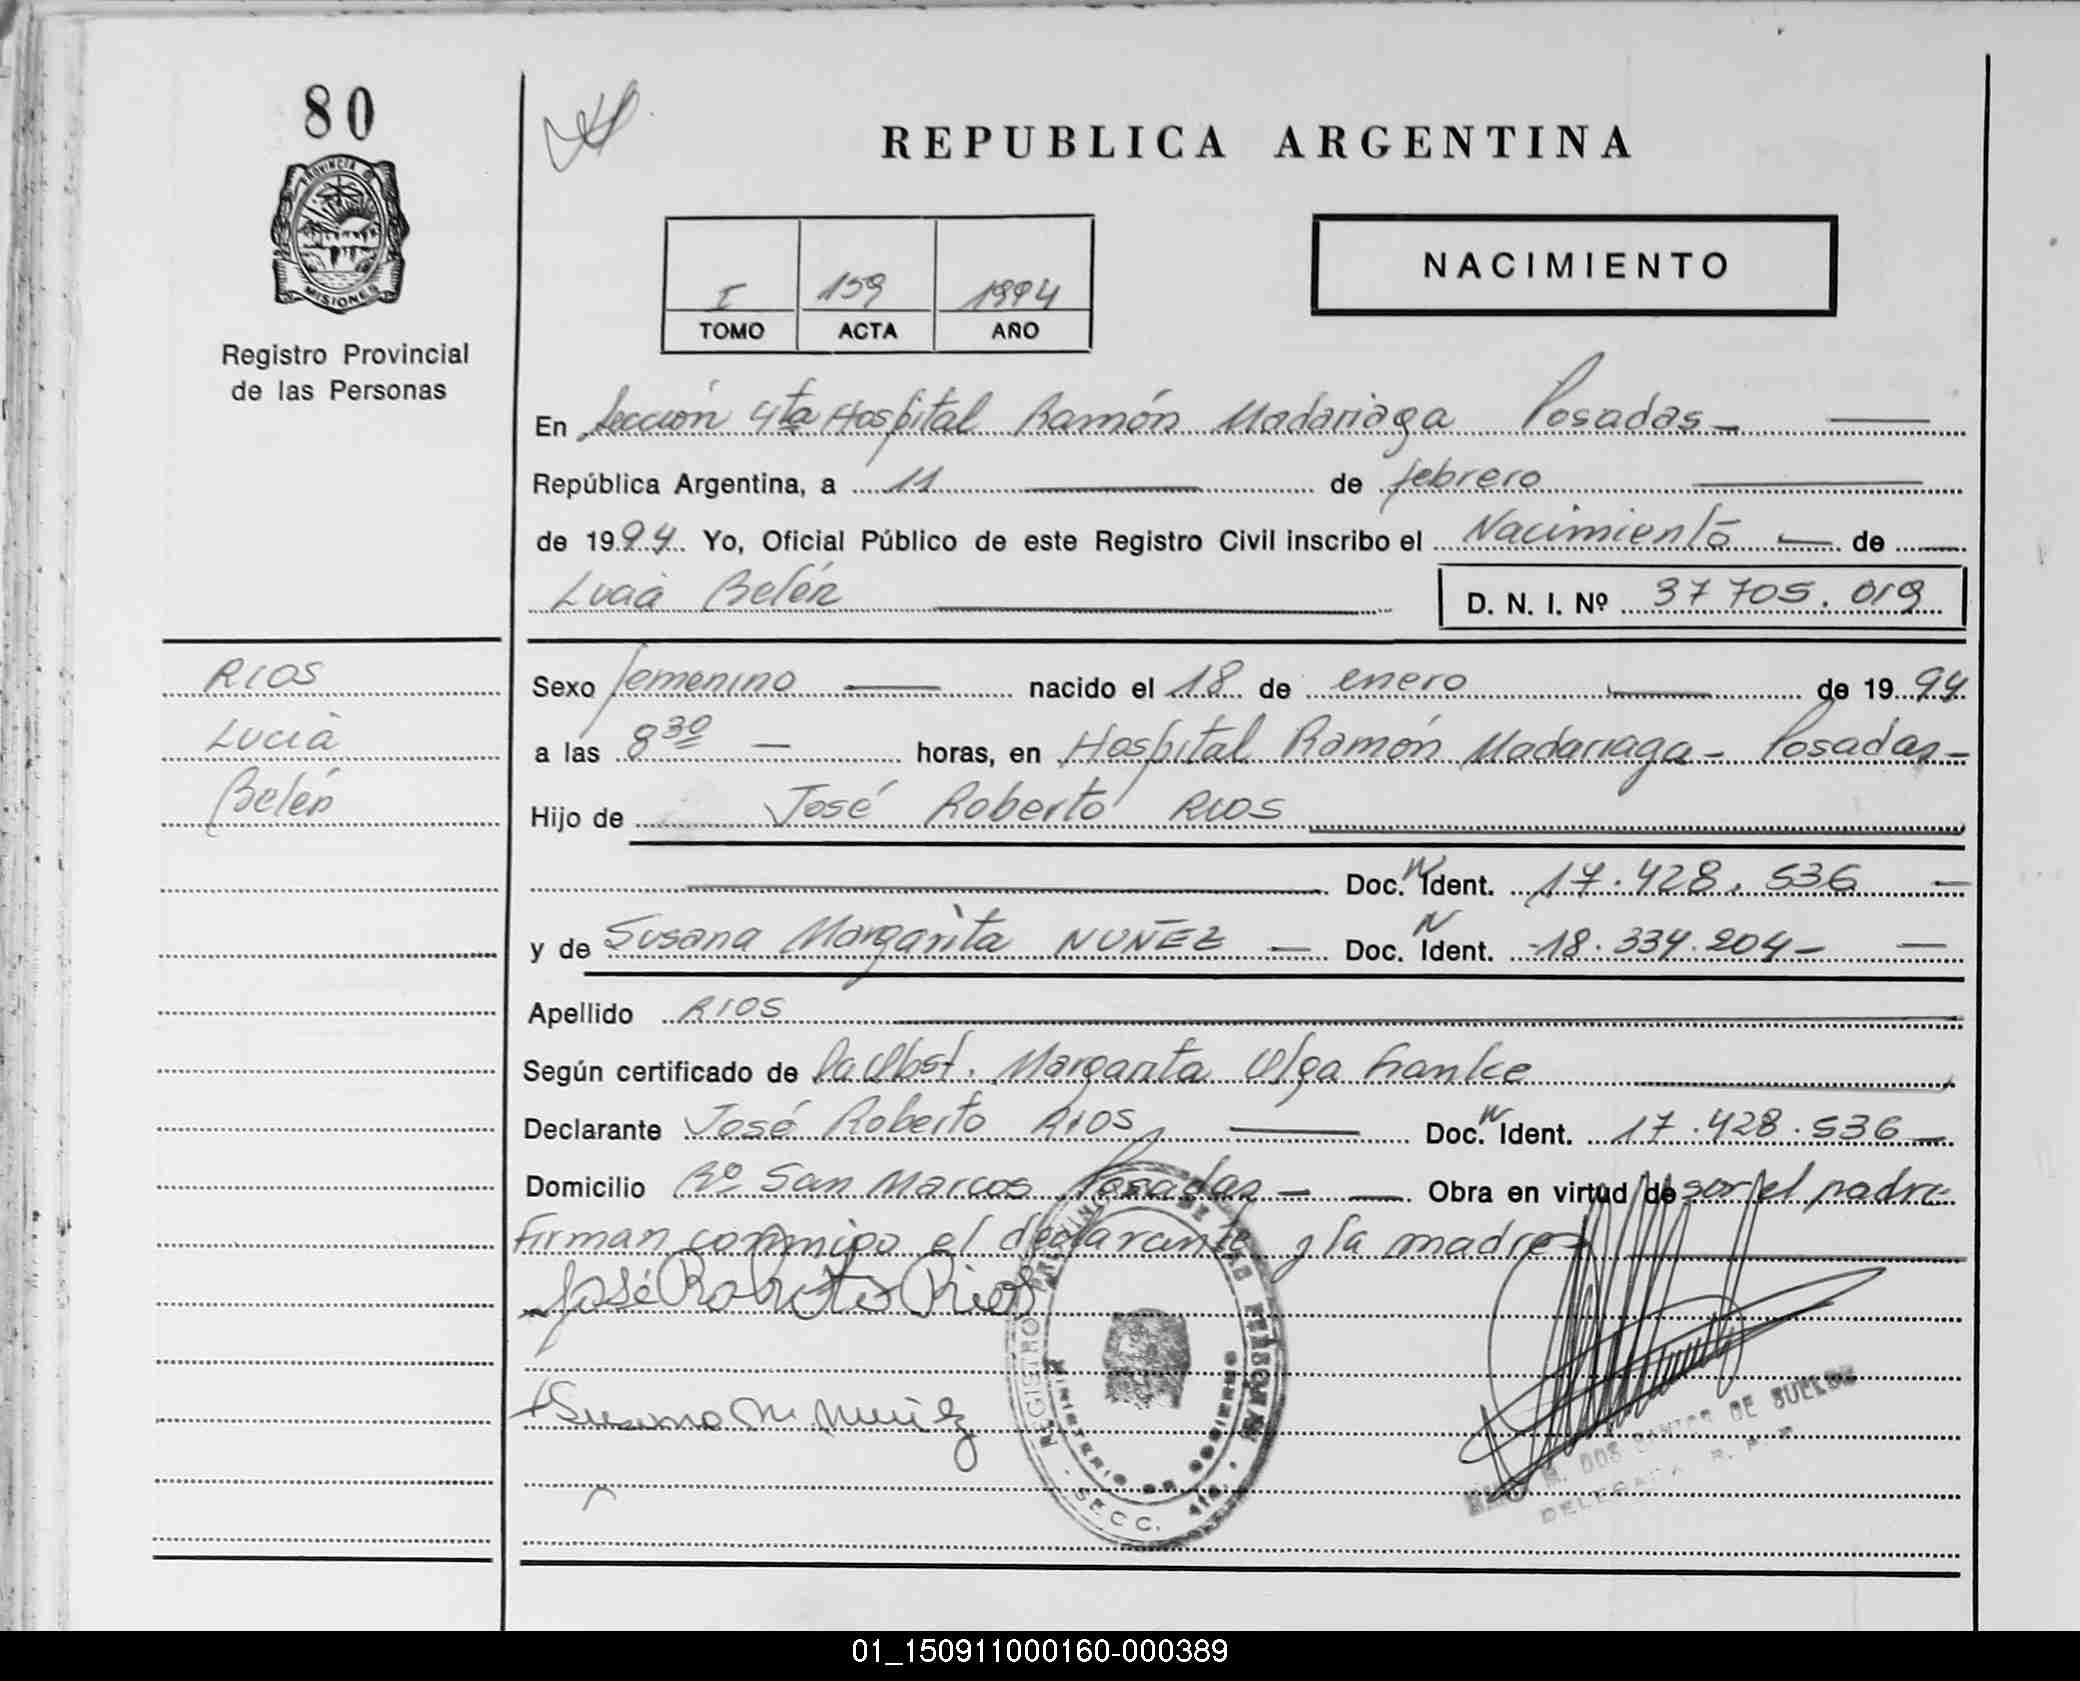 80
PROVINCIA DE
MISIONES
Registro Provincial
de las Personas
REPUBLICA ARGENTINA
I 159 1994
TOMO ACTA AÑO
NACIMIENTO
En Sección 4ta Hospital Ramón Madariaga Posadas-
República Argentina, a 11 de febrero
de 1994 Yo, Oficial Público de este Registro Civil inscribo el Nacimiento de
Lucia Belén D. N. I. Nº 37 705. 019
RIOS
Lucia
Belén
Sexo femenino nacido el 18 de enero de 1994
a las 8 30 horas, en Hospital Ramón Madariaga - Posadas-
Hijo de José Roberto RIOS
Doc. N Ident. 17.428.536
y de Susana Margarita NUÑEZ Doc. N Ident. 18.334.204-
Apellido RIOS
Según certificado de la Obst. Margarita Olga Franke
Declarante José Roberto RIOS Doc. N Ident. 17.428.536
Domicilio Bº San Marcos Posadas - Obra en virtud de ser el padre
Firman conmigo el declarante y la madre
José Roberto Rios
Susana M. Nuñez
REGISTRO PROVINCIAL DE LAS PERSONAS
MINISTERIO DE GOBIERNO
SECC. 4ta.
DOS SANTOS DE BUELOS
DELEGADA R. P. P.
01_150911000160-000389